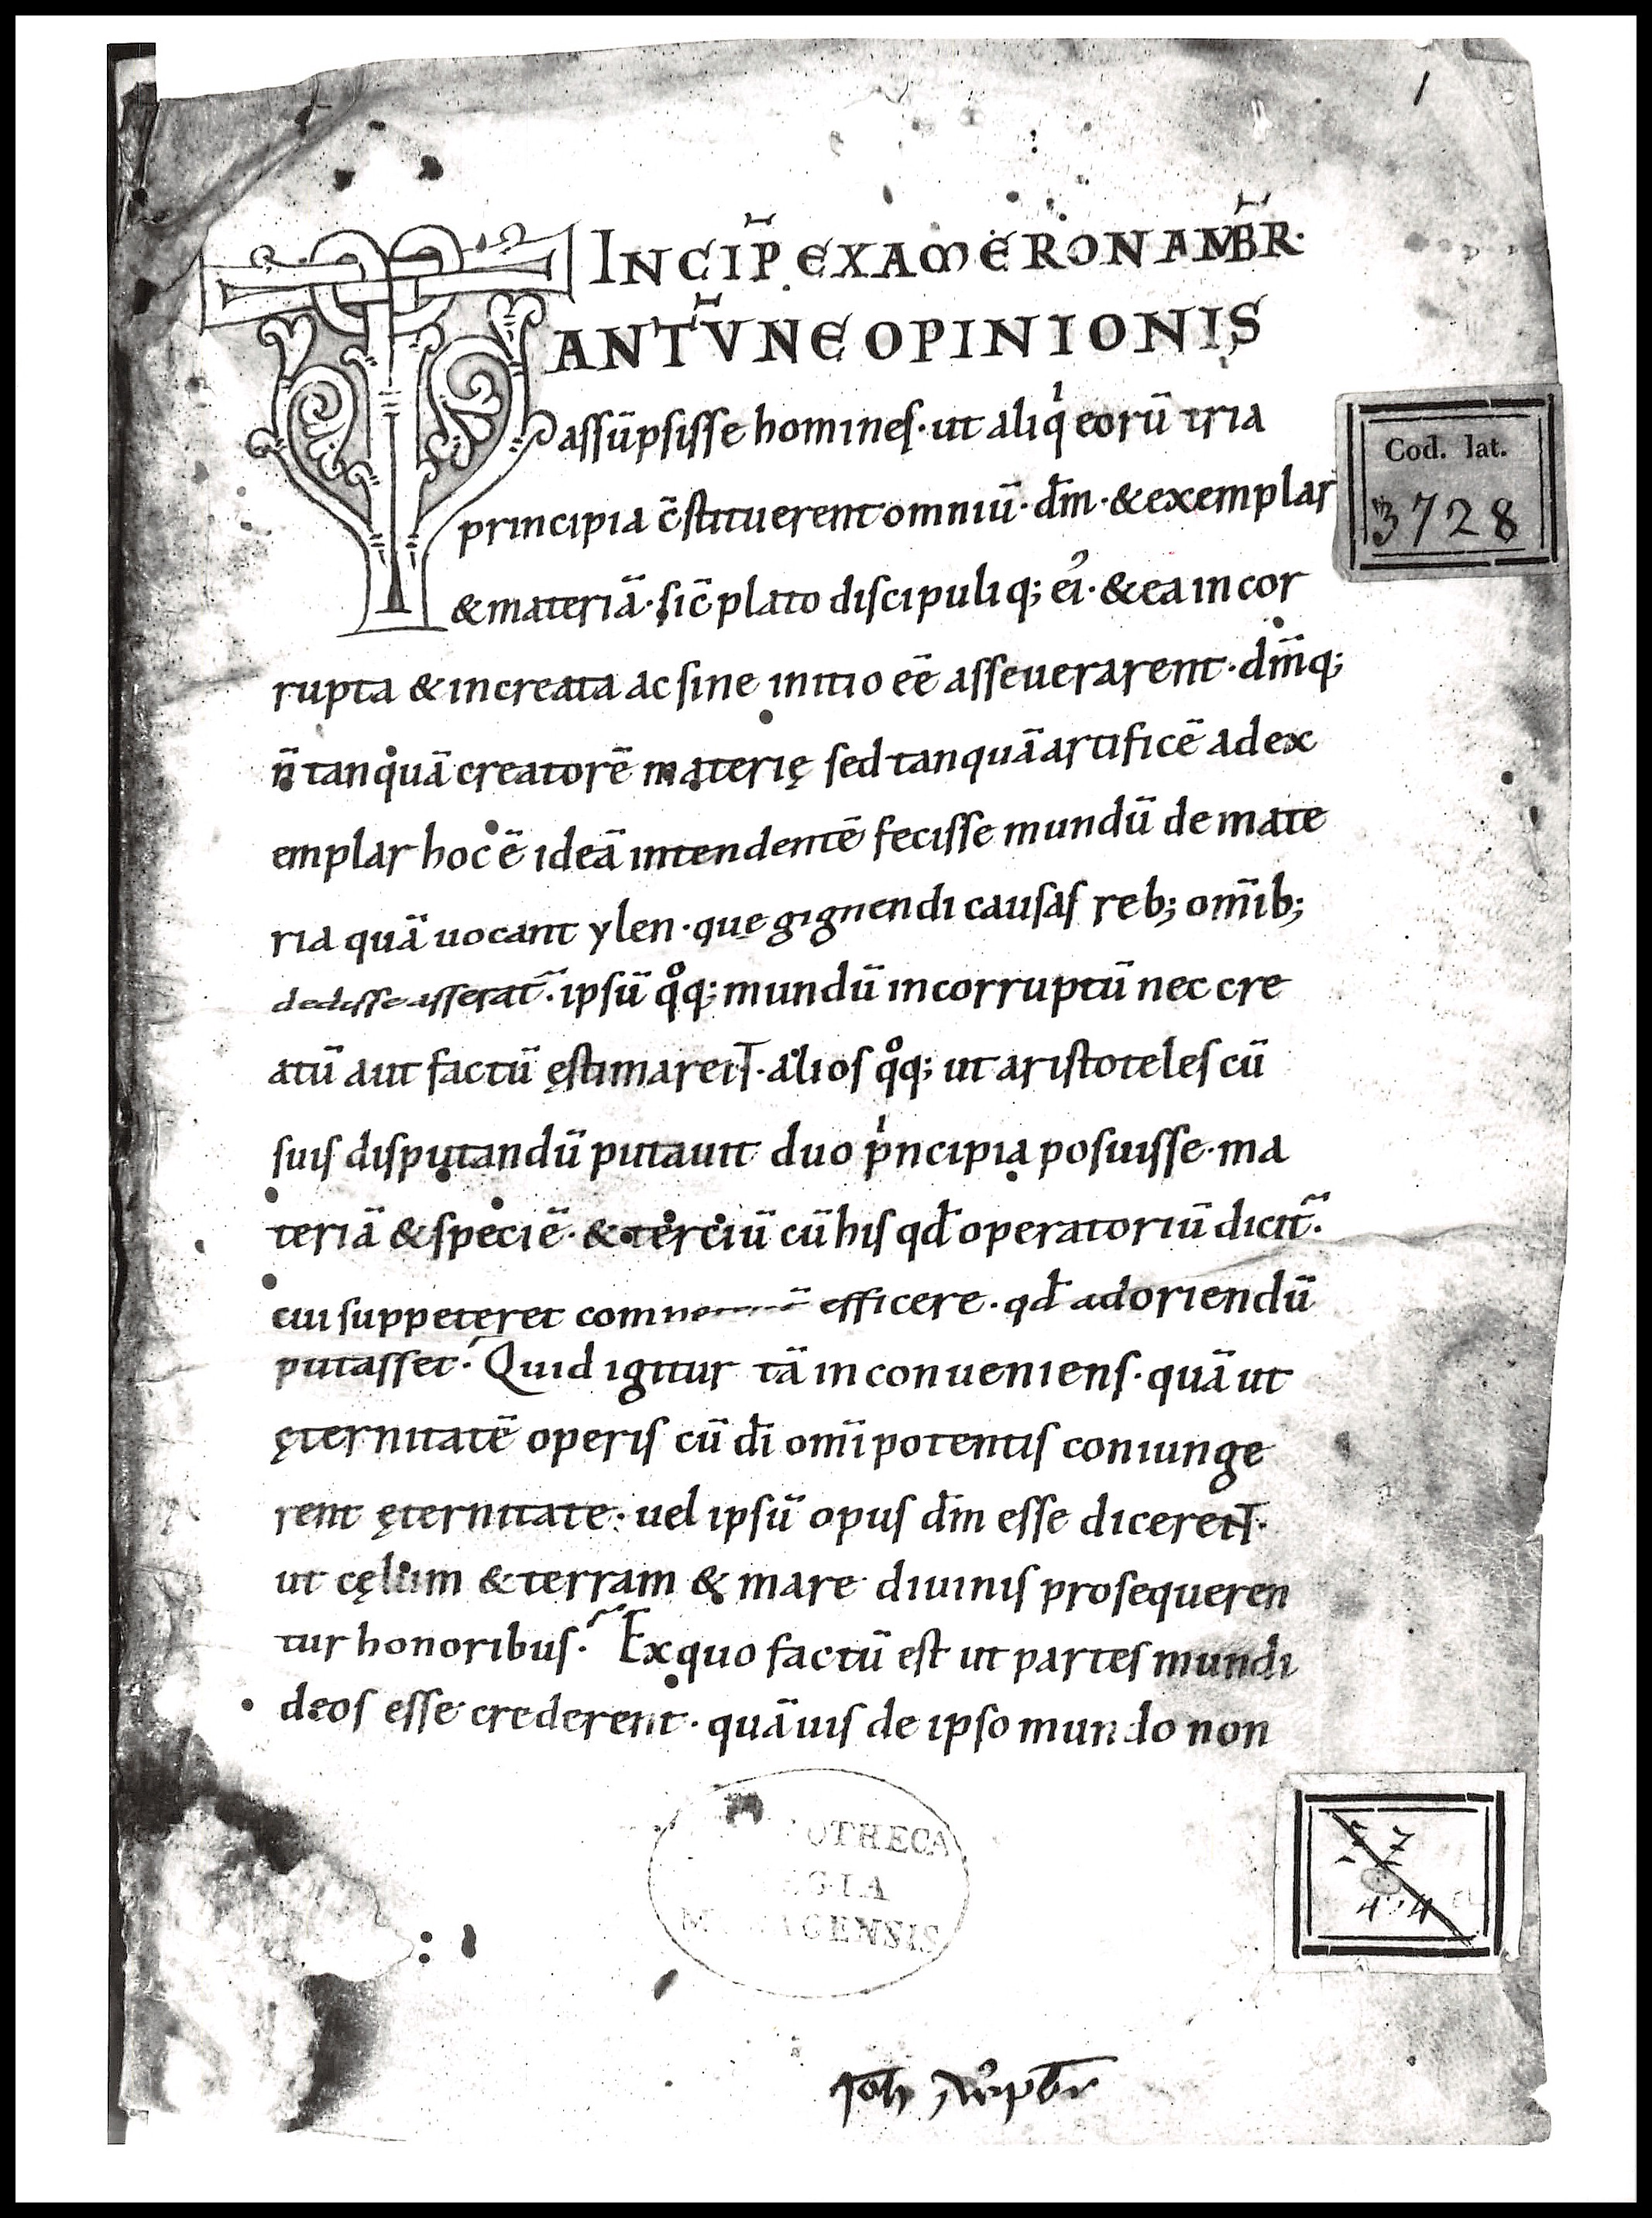 1
INCIP̃ EXAMERON AMB̃R·
TANTV̄NE OPINIONIS
assūpsisse homines· ut aliqͥ eorū tria
principia c̄stituerent omniū· dm̄· & exemplar
& materiā· sic̄ plato discipuliq; eiꝰ· & ea incor
rupta & increata ac sine initio eē asseuerarent· dm̄q;
n̄ tanquā creatorē materię sed tanquā artificē ad ex
emplar hoc ē ideā intendentē fecisse mundū de mate
ria quā uocant ylen· que gignendi causas reb; om̄ib;
dedisse asserat᷑· ipsū qͦq; mundū incorruptū nec cre
atū aut factū ęstimarent· alios qͦq; ut aristoteles cū
suis disputandū putauit duo pͥncipia posuisse· ma
teriā & speciē· & terciū cū his qd̄ operatoriū dicit᷑·
cui suppeteret efficere· qd̄ adoriendū
putasset· Quid igitur tā inconueniens· quā ut
ęternitatē operis cū dī om̄ipotentis coniunge
rent ęternitate· uel ipsū opus dm̄ esse dicerent·
ut cęlum & terram & mare diuinis prosequeren
tur honoribus· Ex quo factū est ut partes mundi
deos esse crederent· quāuis de ipso mundo non
Cod. lat.
3728
OTHECA
GIA
ACENSIS
Joh